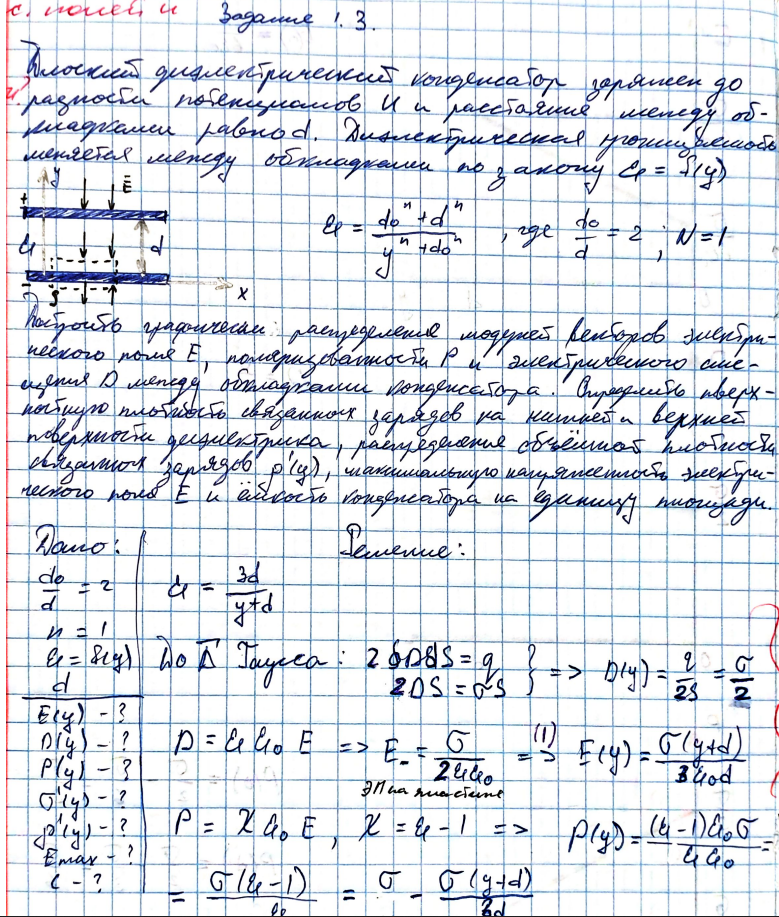 с. полей и
Задание 1.3.
Плоский диэлектрический конденсатор заряжен до
разности потенциалов U и расстояние между об-
кладками равно d. Диэлектрическая проницаемость
меняется между обкладками по закону ε = f(y)
y E
+
ε d
- S x
ε = (d₀ⁿ + dⁿ)/(yⁿ + d₀ⁿ) , где d₀/d = 2 ; N = 1
Построить графически распределение модулей векторов электри-
ческого поля E, поляризованности P и электрического сме-
щения D между обкладками конденсатора. Определить поверх-
ностную плотность связанных зарядов на нижней и верхней
поверхности диэлектрика, распределение объёмной плотности
связанных зарядов ρ'(y), максимальную напряженность электри-
ческого поля E и ёмкость конденсатора на единицу площади.
Дано:
d₀/d = 2
n = 1
ε = f(y)
d
E(y) - ?
D(y) - ?
P(y) - ?
σ'(y) - ?
ρ'(y) - ?
Emax - ?
c - ?
Решение:
ε = 3d/(y+d)
По Гаусса: 2∮DdS = q
2DS = σS } => D(y) = q/2S = σ/2
D = εε₀E => E₋ = σ/(2εε₀) =(1)> E(y) = σ(y+d)/(3ε₀d)
ЭП на пластине
P = χε₀E , χ = ε - 1 => P(y) = (ε-1)ε₀σ/(εε₀) =
= σ(ε-1)/ε = σ - σ(y+d)/(3d)